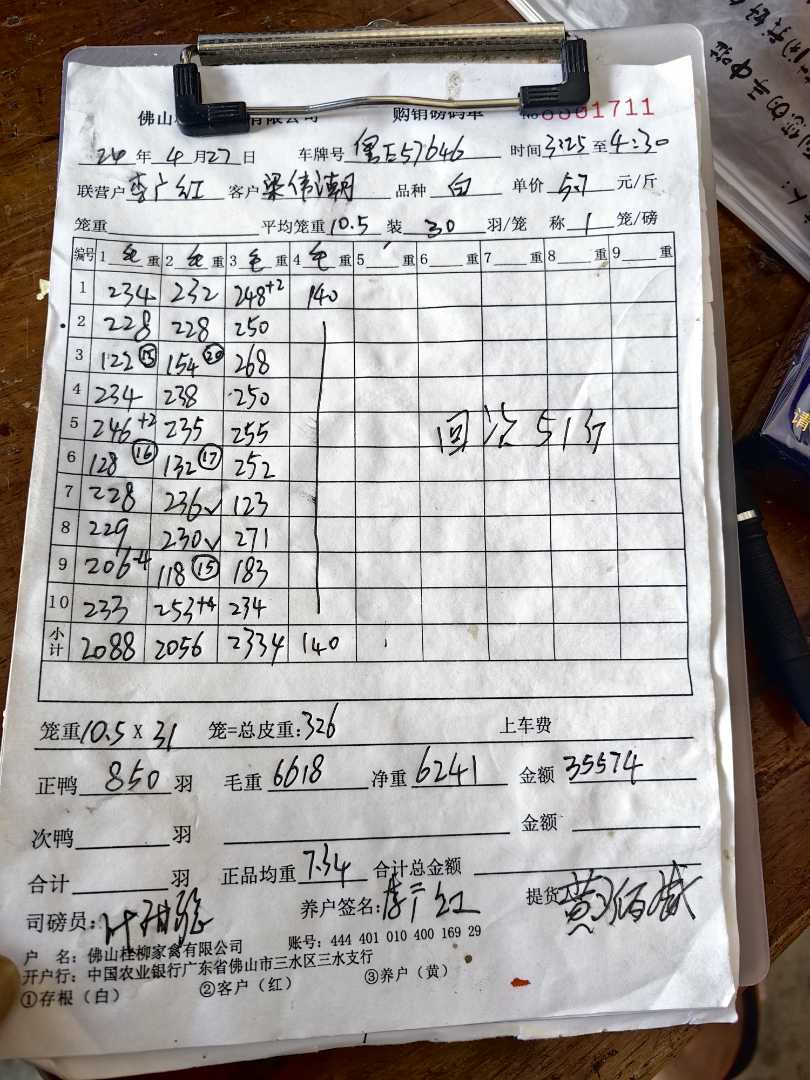 佛山 有限公司 购销磅码单 №0001711
24年4月27日 车牌号 E57646 时间3:25至4:30
联营户 李广红 客户 梁伟潮 品种 白 单价 5.7 元/斤
笼重 平均笼重10.5 装 30 羽/笼 称 1 笼/磅
编号 1 重 2 重 3 毛 重 4 毛 重 5 重 6 重 7 重 8 重 9 重
1 234 232 248+2 140
2 228 228 250
3 122 ⑮ 154 ⑳ 268
4 234 238 250
5 246+2 235 255
6 128 ⑯ 132 ⑰ 252
7 228 236✓ 123
8 229 230✓ 271
9 206-4 118 ⑮ 183
10 233 253+4 234
小计 2088 2056 2334 140
回 51斤
笼重10.5 X 31 笼=总皮重:326 上车费
正鸭 850 羽 毛重 6618 净重 6241 金额 35574
次鸭 羽 金额
合计 羽 正品均重 7.34 合计总金额
司磅员: 养户签名:李广红 提货
户 名:佛山桂柳家禽有限公司 账号:444 401 010 400 169 29
开户行:中国农业银行广东省佛山市三水区三水支行
①存根(白) ②客户(红) ③养户(黄)